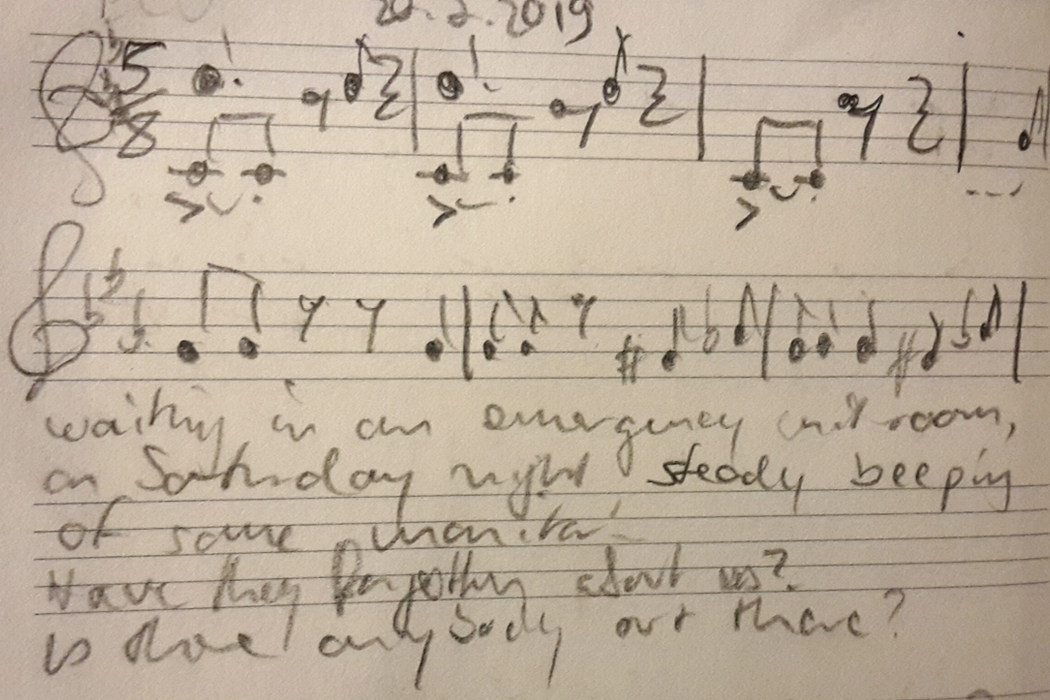 20.2.2019
5
8
waiting in an emergency unit room,
on Saturday night steady beeping
of some monitor
Have they forgotten about us?
Is there anybody out there?